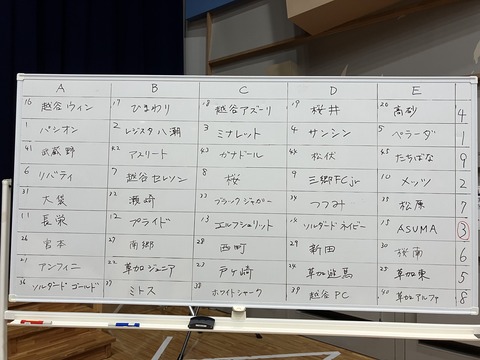 A B C D E
16 越谷ウィン 17 ひまわり 18 越谷アズーリ 19 桜井 20 高砂 4
1 パシオン 2 レジスタ八潮 3 ミナレット 4 サンシン 5 ペラーダ 1
41 武蔵野 42 アスリート 43 ガナドール 44 松伏 45 たちばな 9
6 リバティ 7 越谷セレソン 8 桜 9 三郷FCjr 10 メッツ 2
31 大袋 32 瀬崎 33 ブラックジャガー 34 つつみ 35 松原 7
11 長栄 12 プライド 13 エルフシュリット 14 ソルダードネイビー 15 ASUMA 3
26 宮本 27 南郷 28 西町 29 新田 30 桜南 6
21 アンフィニ 22 草加ジュニア 23 戸ヶ崎 24 草加遊馬 25 草加東 5
36 ソルダードゴールド 37 ミトス 38 ホワイトシャーク 39 越谷PC 40 草加アルファ 8